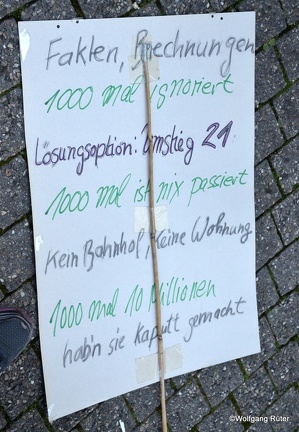 Fakten, Brechnungen
1000 mal ignoriert
Lösungsoption: Umstieg 21
1000 mal ist nix passiert
Kein Bahnhof, Keine Wohnung
1000 mal 10 Millionen
hab'n sie kaputt gemacht
©Wolfgang Rüter